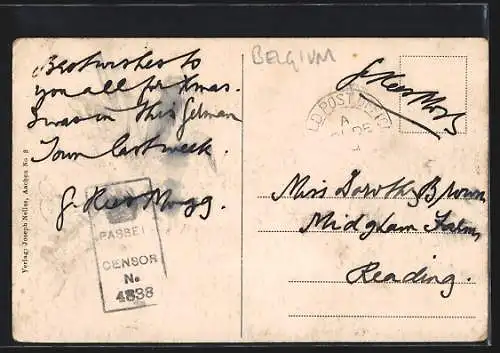 Best wishes to
you all for Xmas.
I was in this German
Town last week.
G. Mugg.
PASSED
CENSOR
No
4838
Verlag: Joseph Nellen, Aachen No 8
BELGIUM
LD POST OFFICE
A
Miss Dorothy Brown
Midgham Farm,
Reading.